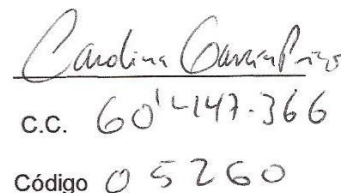 Carolina García
C.C. 60'447.366
Código 05260